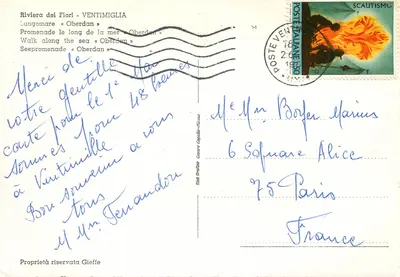 Riviera dei Fiori - VENTIMIGLIA
Lungomare « Oberdan »
Promenade le long de la mer « Oberdan »
Walk along the sea « Oberdan »
Seepromenade « Oberdan »
Merci de
votre gentille
carte pour le 1er Mai
sommes pour 48 heures
à Vintimille
Bon souvenir a vous
tous
M Mme
Proprietà riservata Gieffe
SCAUTISMO
POSTE ITALIANE
POSTE VENT
M et Mme Marius
6 Square Alice
75 Paris
France